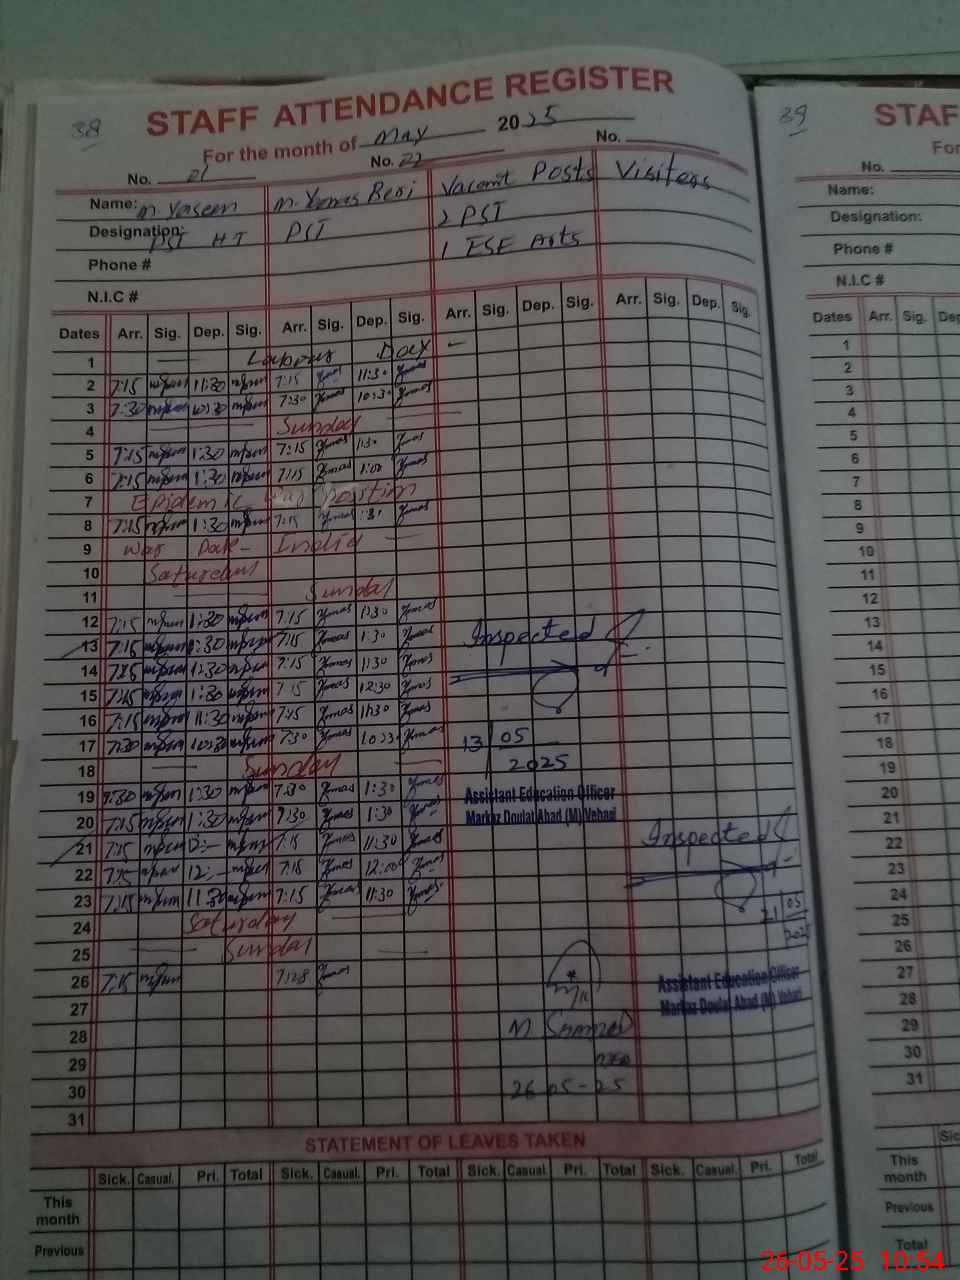 38
STAFF ATTENDANCE REGISTER
For the month of May 2025
No. 21 No. 22 No.
Name: M. Yaseen M. Younas Vacant Posts Visitors
Designation: PST HT PST 2 PST
1 ESE Arts
Phone #
N.I.C #
Dates Arr. Sig. Dep. Sig. Arr. Sig. Dep. Sig. Arr. Sig. Dep. Sig. Arr. Sig. Dep. Sig.
1 Labour Day
2 7:15 11:30 7:15 11:30
3 7:30 10:30 7:30 10:30
4 Sunday
5 7:15 1:30 7:15 1:30
6 7:15 1:30 7:15 1:00
7 Epidemic War Position
8 7:15 1:30 7:15 1:30
9 War Pak - India
10 Saturday
11 Sunday
12 7:15 1:30 7:15 1:30
13 7:15 1:30 7:15 1:30 Inspected
14 7:15 1:30 7:15 1:30
15 7:15 1:30 7:15 12:30
16 7:15 11:30 7:15 11:30
17 7:30 10:30 7:30 10:30 13/05
18 Sunday 2025
19 7:30 1:30 7:30 1:30 Assistant Education Officer
20 7:15 1:30 7:30 1:30 Markaz Doulat Abad (M) Vehari
21 7:15 12:- 7:15 11:30 Inspected
22 7:15 12:- 7:15 12:00
23 7:15 11:30 7:15 11:30
24 Saturday 21/05
25 Sunday 2025
26 7:15 7:28 Assistant Education Officer
27 Markaz Doulat Abad (M) Vehari
28 M
29
30 26-05-25
31
STATEMENT OF LEAVES TAKEN
Sick. Casual. Pri. Total Sick. Casual. Pri. Total Sick. Casual. Pri. Total Sick. Casual. Pri. Total
This month
Previous
39
STAF
For
No.
Name:
Designation:
Phone #
N.I.C #
Dates Arr. Sig. Dep
1
2
3
4
5
6
7
8
9
10
11
12
13
14
15
16
17
18
19
20
21
22
23
24
25
26
27
28
29
30
31
Sic
This month
Previous
Total
26-05-25 10:54